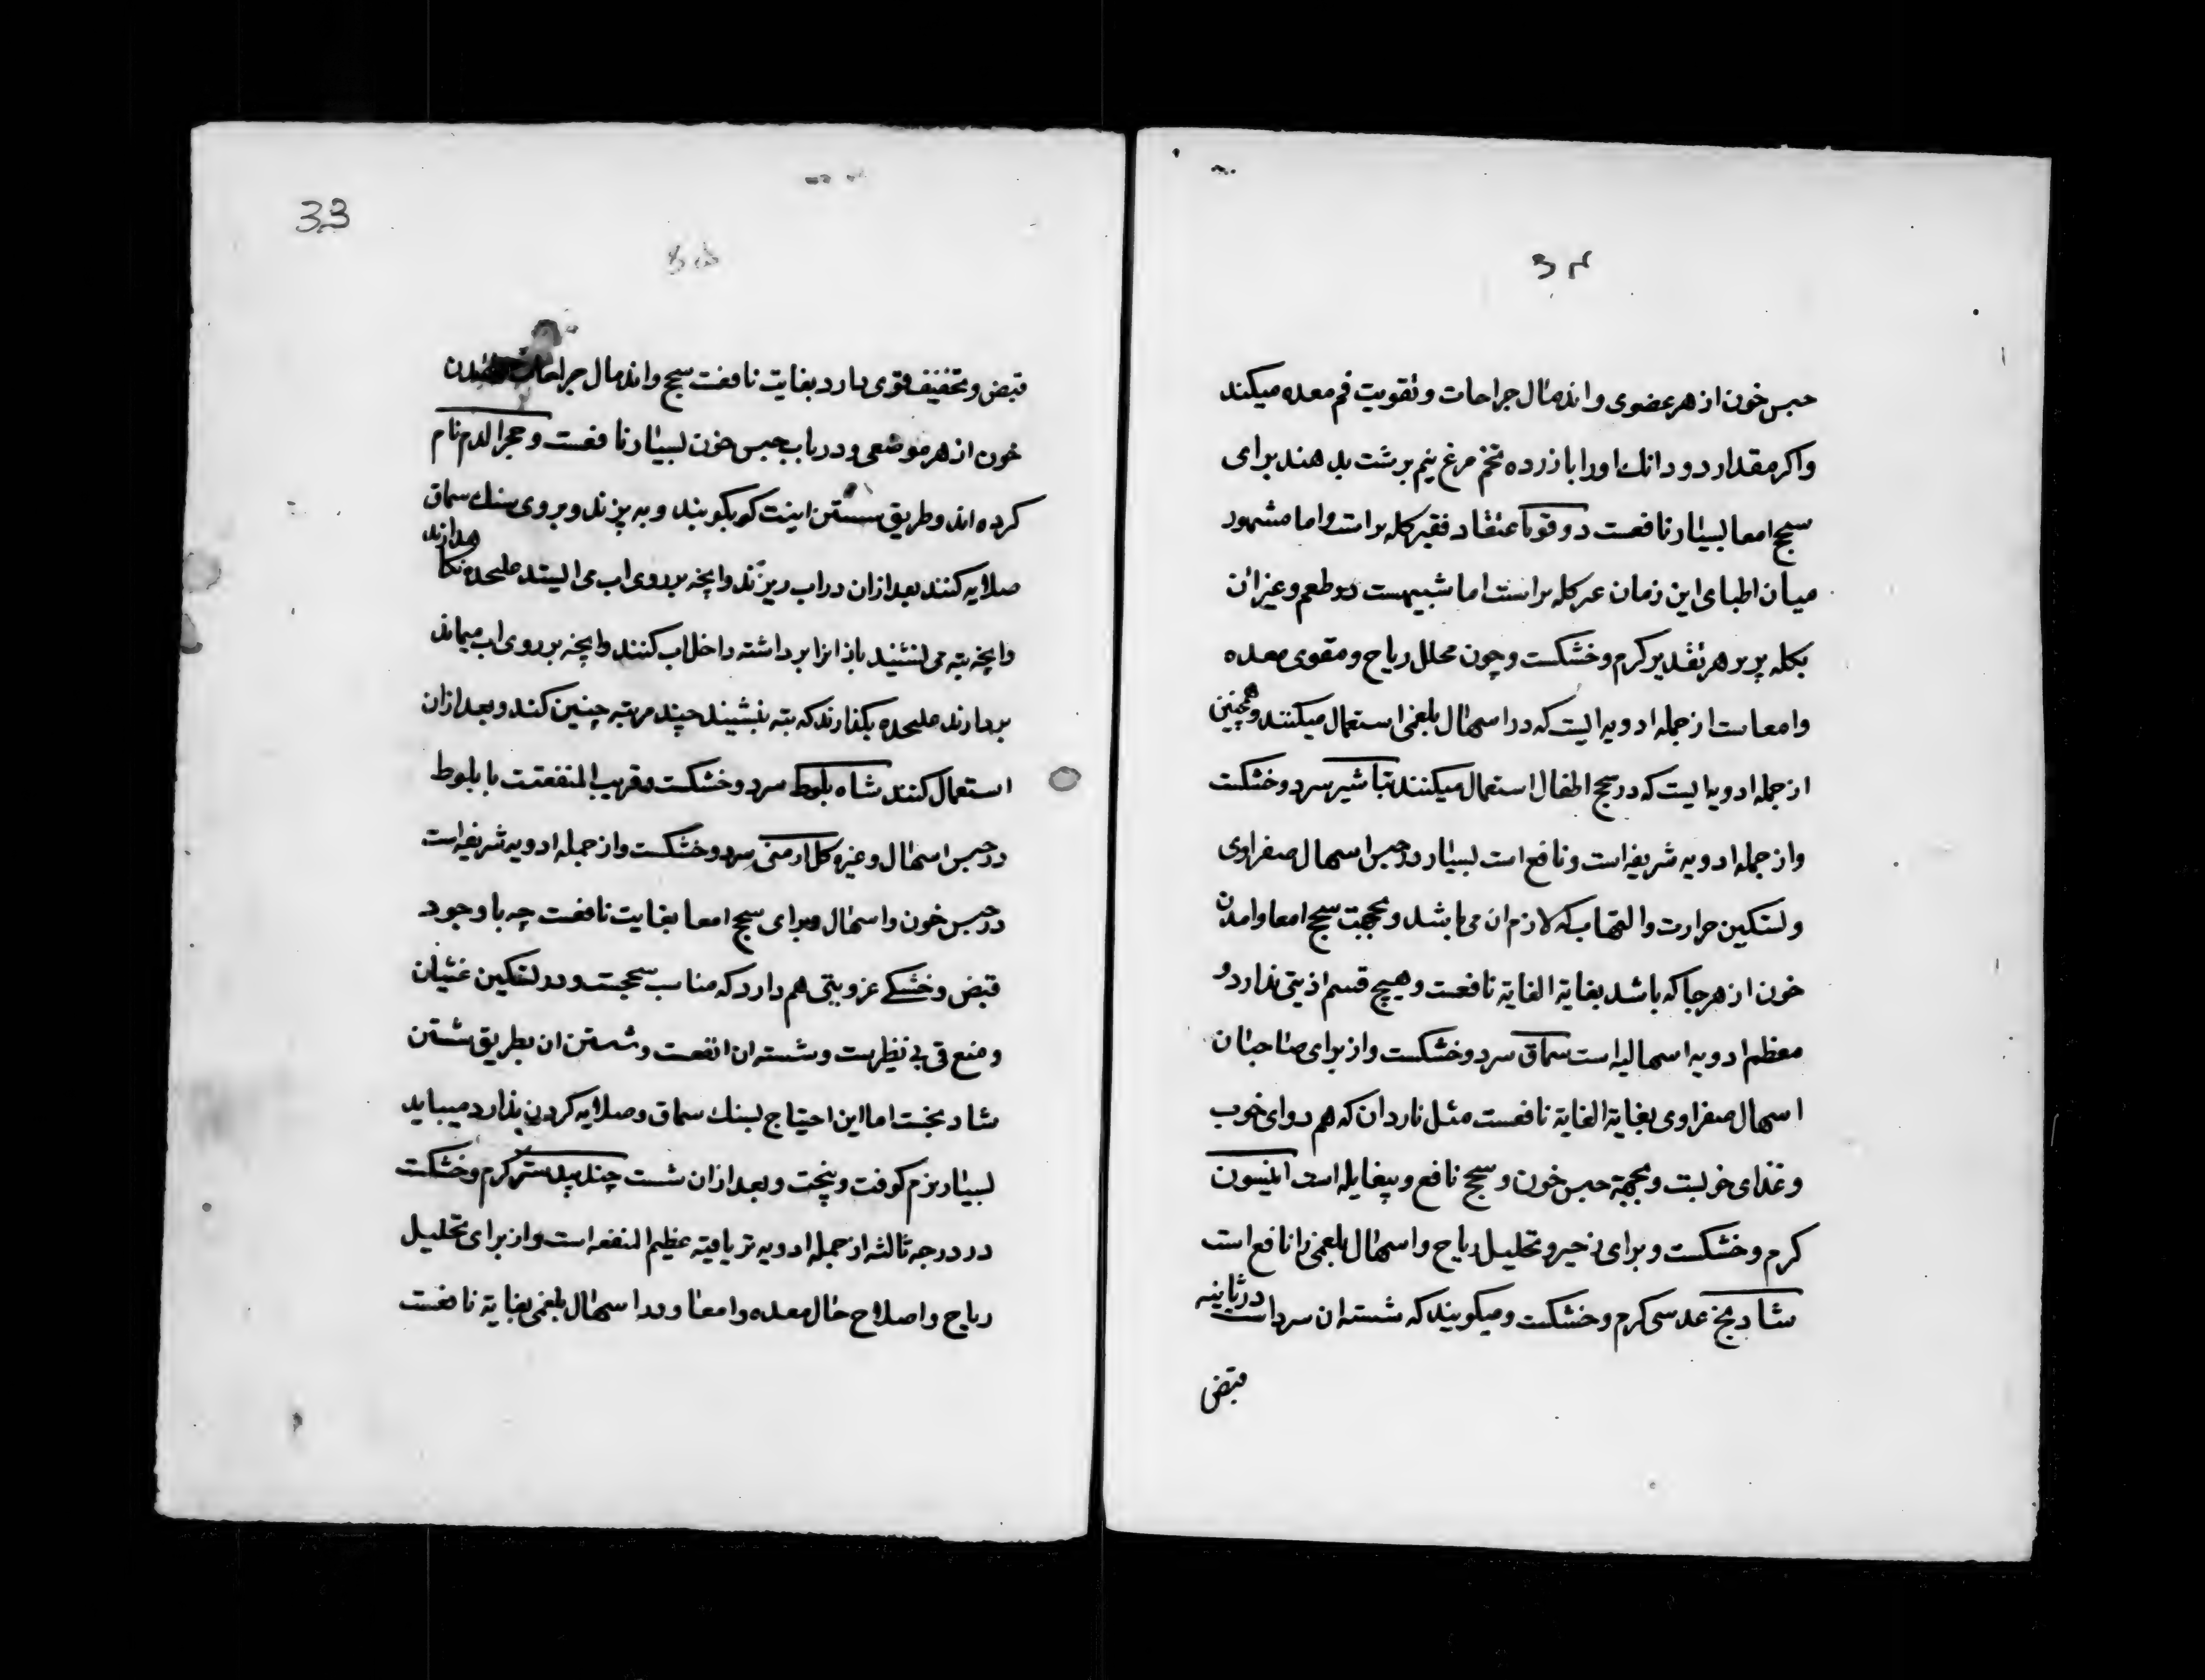 ۳۴
حبس خون از هر عضوی و اندمال جراحات و تقویت فم معده میکند
و اکر مقدار دو دانك اورا با زرده تخم مرغ نیم برشت بدهند برای
سحج امعا بسیار نافعست دوقو باعتقاد فقیر کله براست و اما مشهور
میان اطبای این زمان غیر کله براست اما شبیهست در طعم و غیر ان
بکله پر بر هر تقدیر کرم و خشکست و چون محلل ریاح و مقوی معده
و امعاست از جمله ادویه ایست که در اسهال بلغمی استعمال میکنند و همچنین
از جمله ادویه ایست که در سحج اطفال استعمال میکنند تباشیر سرد و خشکست
و از جمله ادویه شریفه است و نافع است بسیار در حبس اسهال صفراوی
و تسکین حرارت و التهاب که لازم ان می باشد و بجهت سحج امعا و امدن
خون از هر جا که باشد بغایة الغایة نافعست و هیچ قسم اذیتی ندارد و
معظم ادویه اسهالیه است سماق سرد و خشکست و از برای صاحبان
اسهال صفراوی بغایة الغایة نافعست مثل ناردان که هم دوای خوب
و غذای خوبست و بجهة حبس خون و سحج نافع و بیغایله است انیسون
کرم و خشکست و برای زحیر و تحلیل ریاح و اسهال بلغمی را نافع است
شادنج عدسی کرم و خشکست و میکویند که شسته ان سرد است در ثانیه
قبض
33
۳۵
قبض و تخفیف قوی دارد بغایت نافعست سحج و اندمال جراحات
خون از هر موضعی و در باب حبس خون بسیار نافعست و حجر الدم نام
کرده اند و طریق شستن اینست که بکوبند و به پزند و بروی سنك سماق
صلایه کنند بعد از ان در اب ریزند و انچه بر روی اب می ایستد علیحده نکا هدارند
و انچه بته می نشیند باز انرا برداشته داخل اب کنند و انچه بر روی اب میماند
بردارند علیحده بکذارند که بته بنشیند چند مرتبه چنین کند و بعد از ان
استعمال کنند شاه بلوط سرد و خشکست و قریب المنفعتت با بلوط
در حبس اسهال و غیره کل ارمنی سرد و خشکست و از جمله ادویه شریفه است
در حبس خون و اسهال و برای سحج امعا بغایت نافعست چه با وجود
قبض و خشکی عزوبتی هم دارد که مناسب سحجست و در تسکین غشیان
و منع قی بی نظیرست و شسته ان انفعست و شستن ان بطریق شستن
شادنجست اما این احتیاج بسنك سماق و صلایه کردن ندارد میباید
بسیار نرم کوفت و پخت و بعد از ان شست چند بیدستر کرم و خشکست
در درجه ثالثه از جمله ادویه تریاقیه عظیم المنفعه است و از برای تحلیل
ریاح و اصلاح حال معده و امعا و در اسهال بلغمی بغایة نافعست